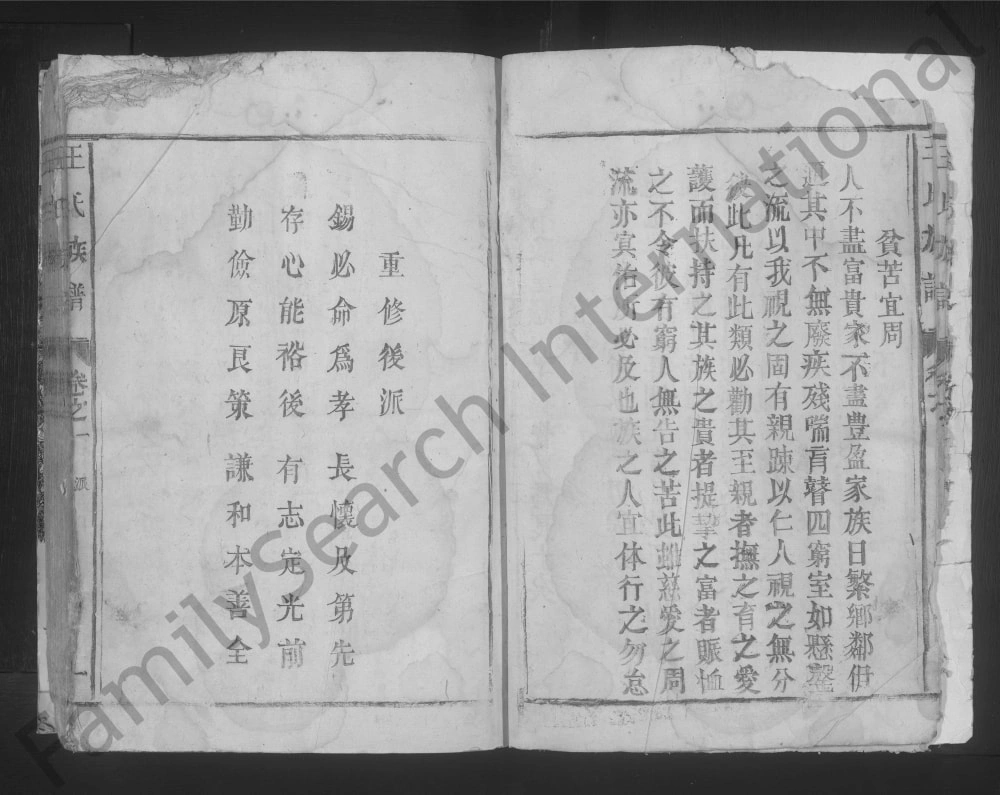 貧苦宜周
人不盡富貴家不盡豊盈家族日繁鄉鄰伊
邇其中不無廢疾殘喘盲瞽四窮室如懸罄
之流以我視之固有親踈以仁人視之無分
彼此凡有此類必勸其至親者撫之育之愛
護而扶持之其族之貴者提挈之富者賑恤
之不令彼有窮人無告之苦此雖慈愛之周
流亦冥治所必及也族之人宜体行之勿怠
重修後派
錫必命爲孝 長懷及第先
存心能裕後 有志定光前
勤儉原良策 謙和本善全
王氏族譜 卷之一 派 一
FamilySearch International